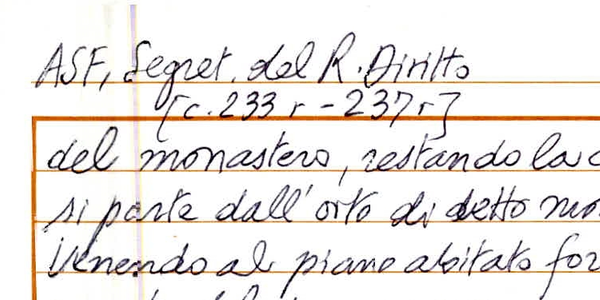 ASF, Segret. del R. Diritto
[c. 233 r - 237 r]
del monastero, restando la c
si parte dall'orto di detto mo
venendo al piano abitato for